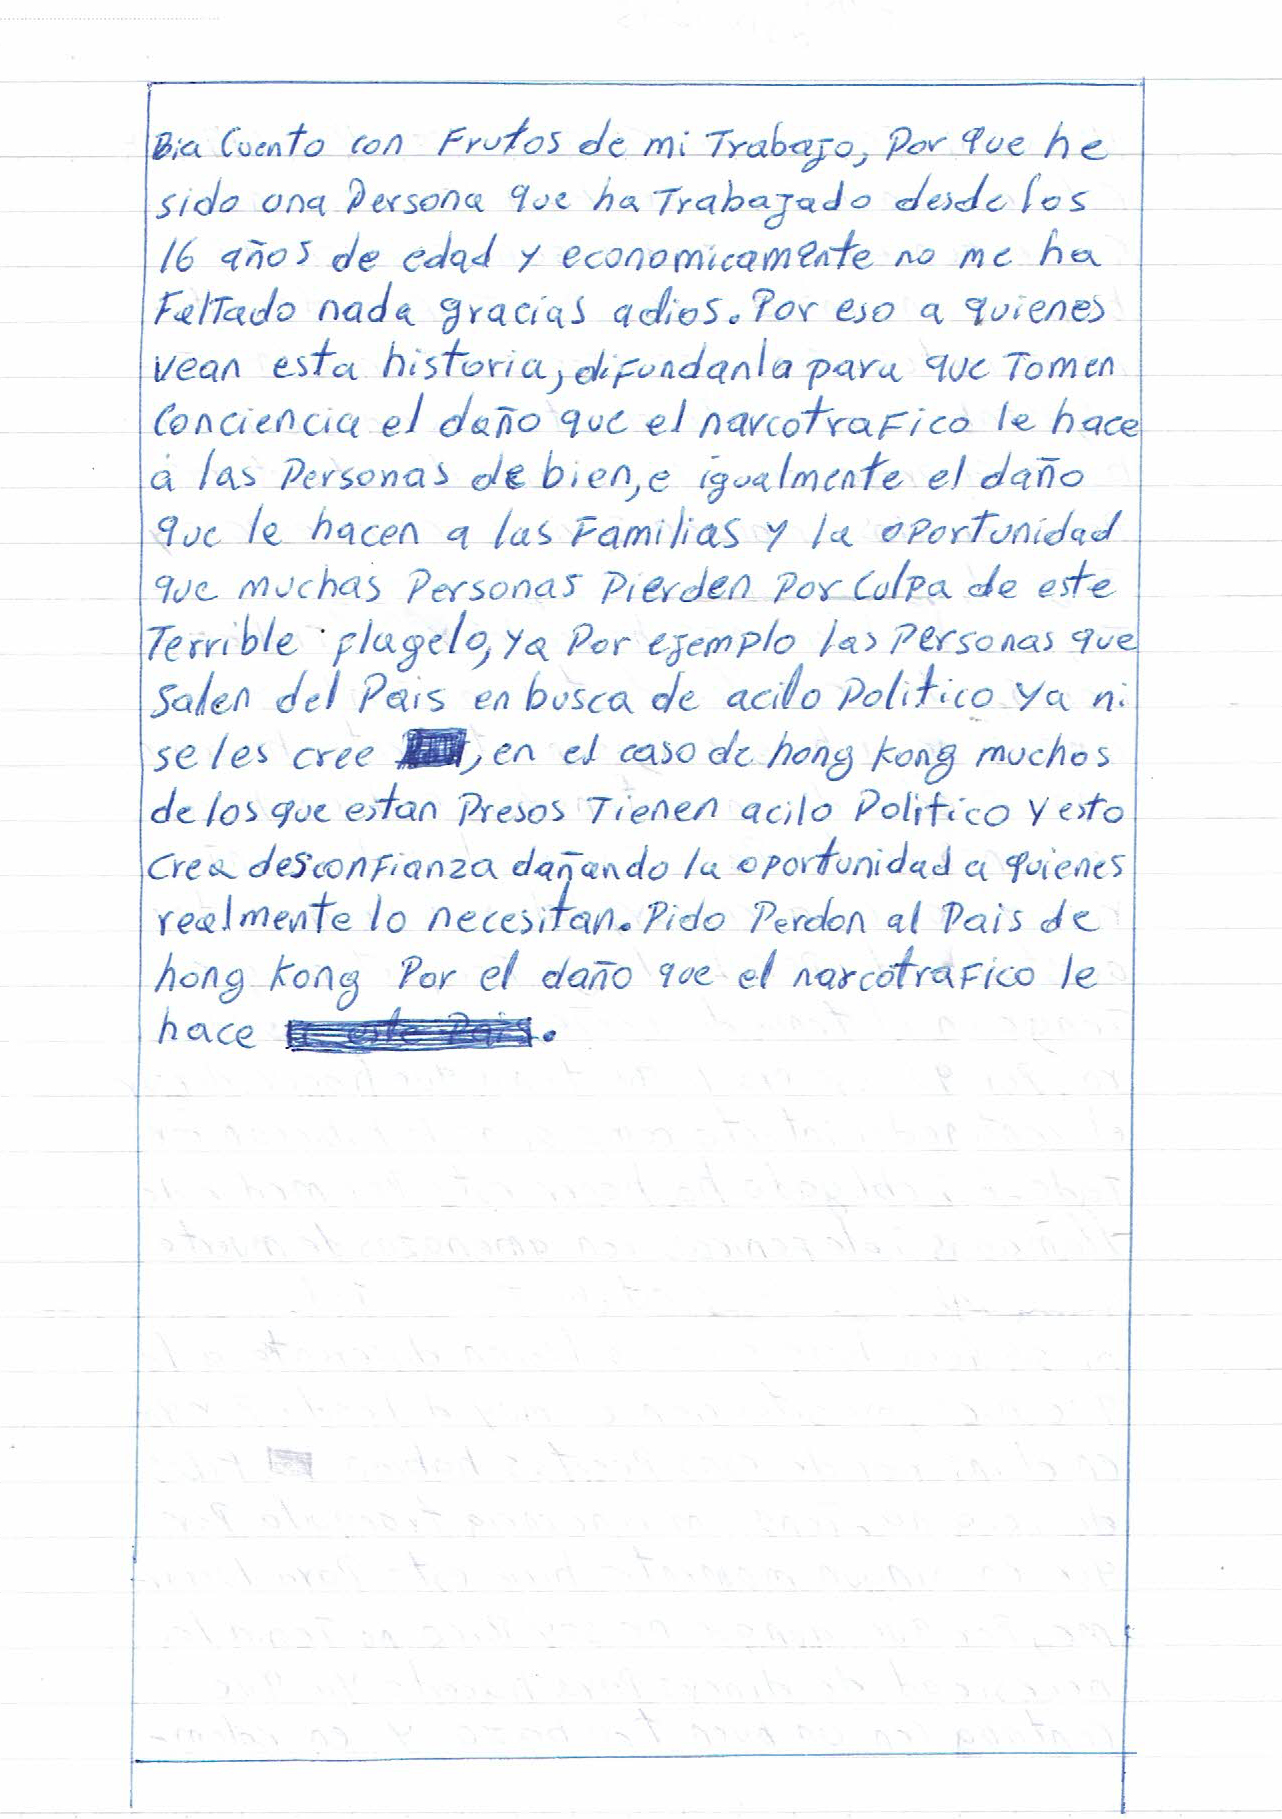 Bia Cuento con Frutos de mi Trabajo, Por que he
sido una Persona que ha Trabajado desde los
16 años de edad y economicamente no me ha
Faltado nada gracias adios. Por eso a quienes
vean esta historia, difundanla para que Tomen
Conciencia el daño que el narcotraFico le hace
a las Personas de bien, e igualmente el daño
que le hacen a las Familias y la oportunidad
que muchas Personas Pierden Por Culpa de este
Terrible flagelo, ya Por ejemplo las Personas que
Salen del Pais en busca de acilo Politico Ya ni
se les cree , en el caso de hong Kong muchos
de los que estan Presos Tienen acilo Politico y esto
Crea desconFianza dañando la oportunidad a quienes
realmente lo necesitan. Pido Perdon al Pais de
hong Kong Por el daño que el narcotraFico le
hace .